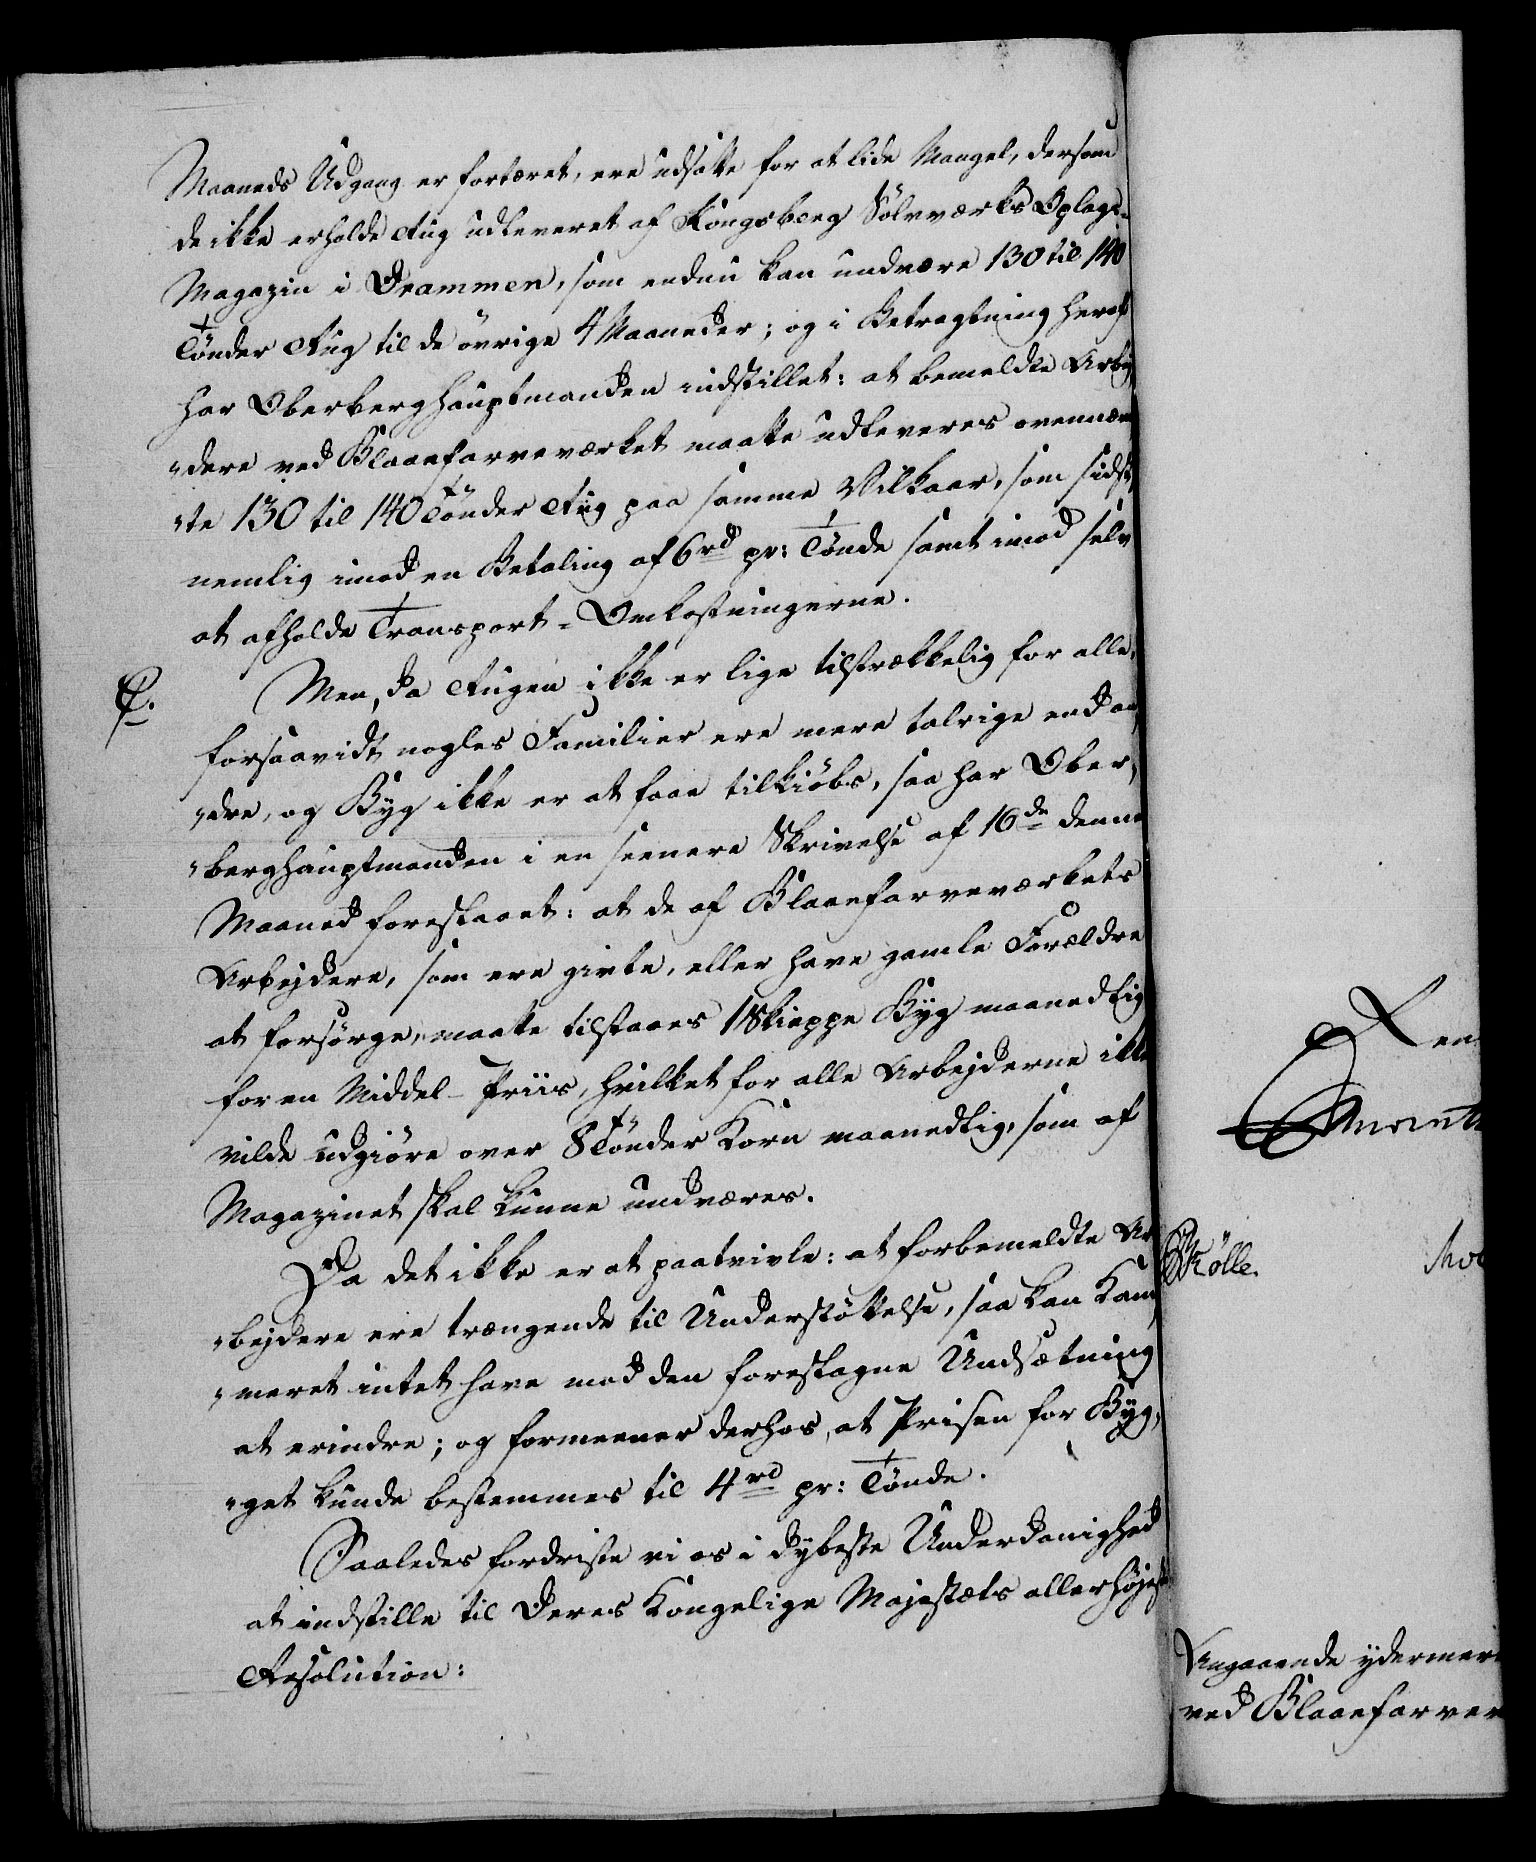 Maaneds Udgang er fortæret, ere udsatte for at lide Mangel, dersom
de ikke erholde Rug udleveret af Kongsberg Sölvværks Oplags-
Magazin i Drammen, som endnu kan undvære 130 til 140
Tönder Rug til de övrige 4 Maaneder; og i Betragtning heraf
har Oberberghauptmanden indstillet: at bemeldte Arbej
"dere ved Blaaefarveværket maatte udleveres ovennævn
"te 130 til 140 Tönder Rug paa samme Vilkaar, som sidst,
nemlig imod en Betaling af 6 rd pr: Tönde samt imod selv
at afholde Transport-Omkostningerne.
C. Men, da Rugen ikke er lige tilstrækkelig for alle,
forsaavidt nogles Familier ere mere talrige end an
"dre, og Byg ikke er at faae tilkiöbs, saa har Ober,
"berghauptmanden i en seenere Skrivelse af 16de denne
Maaned foreslaaet: at de af Blaaefarveværkets
Arbejdere, som ere givte, eller have gamle Forældre
at forsörge, maatte tilstaaes 1 Skieppe Byg maanedlig
for en Middel-Priis, hvilket for alle Arbejderne ikke
vilde udgiöre over 8 Tönder Korn maanedlig, som af
Magazinet skal kunne undværes.
Da det ikke er at paatvivle: at forbemeldte Ar
"bejdere ere trængende til Understöttelse, saa kan Kam
"meret intet have mod den foreslagne Undsætning
at erindre; og formeener derhos, at Prisen for Byg,
"get kunde bestemmes til 4 rd pr: Tönde.
Saaledes fordriste vi os i dybeste Underdanighed
at indstille til Deres Kongelige Majestæts allerhöjeste
Resolution:
Ren
Skölle.
Angaaende ydermere
ved Blaaefarver